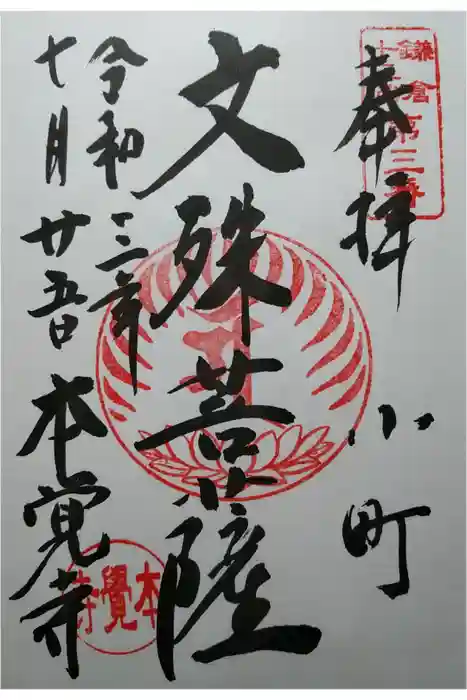 奉拝
小町
文殊菩薩
令和三年
七月廿五日
本覚寺
鎌倉第三番
本覺寺